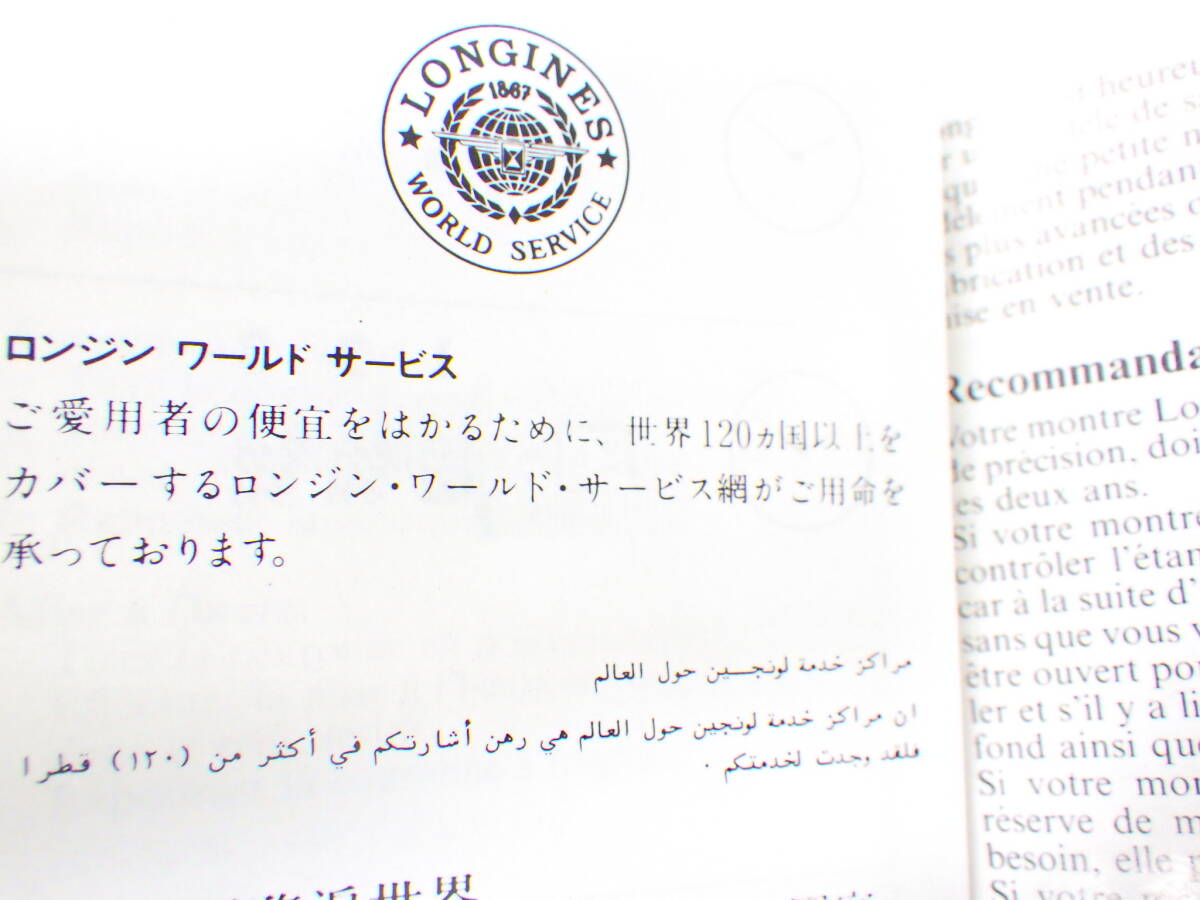 LONGINES
1867
WORLD SERVICE
ロンジン ワールド サービス
ご愛用者の便宜をはかるために、世界120ヵ国以上を
カバーするロンジン・ワールド・サービス網がご用命を
承っております。
مراكز خدمة لونجــين حول العالم
ان مراكز خدمة لونجين حول العالم هي رهن أشارتـكم في أكثر من (١٢٠) قطرا
فلقد وجدت لخدمتكم .
世界
heureu
de s
petite m
pendan
plus avancées
et des
en vente.
Recommanda
Votre montre Lo
de précision, doi
les deux ans.
Si votre montre
contrôler l'étan
car à la suite d'
sans que vous v
être ouvert pou
ler et s'il y a li
fond ainsi que
Si votre mon
réserve de m
besoin, elle
Si votre